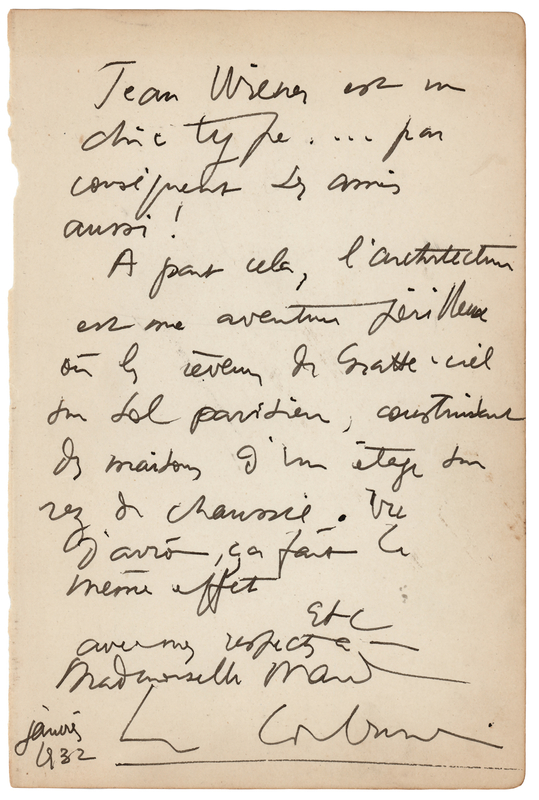 Jean Wiener est un
chic type .... par
conséquent ses amis
aussi !
A part cela, l'architecture
est une aventure périlleuse
où les rêveurs de Gratte-ciel
sur sol parisien, construisent
des maisons d'un étage sur
rez de chaussée. Vu
d'avion, ça fait le
même effet
Etc
avec mes respects à
Mademoiselle
Le Corbusier
janvier
1932